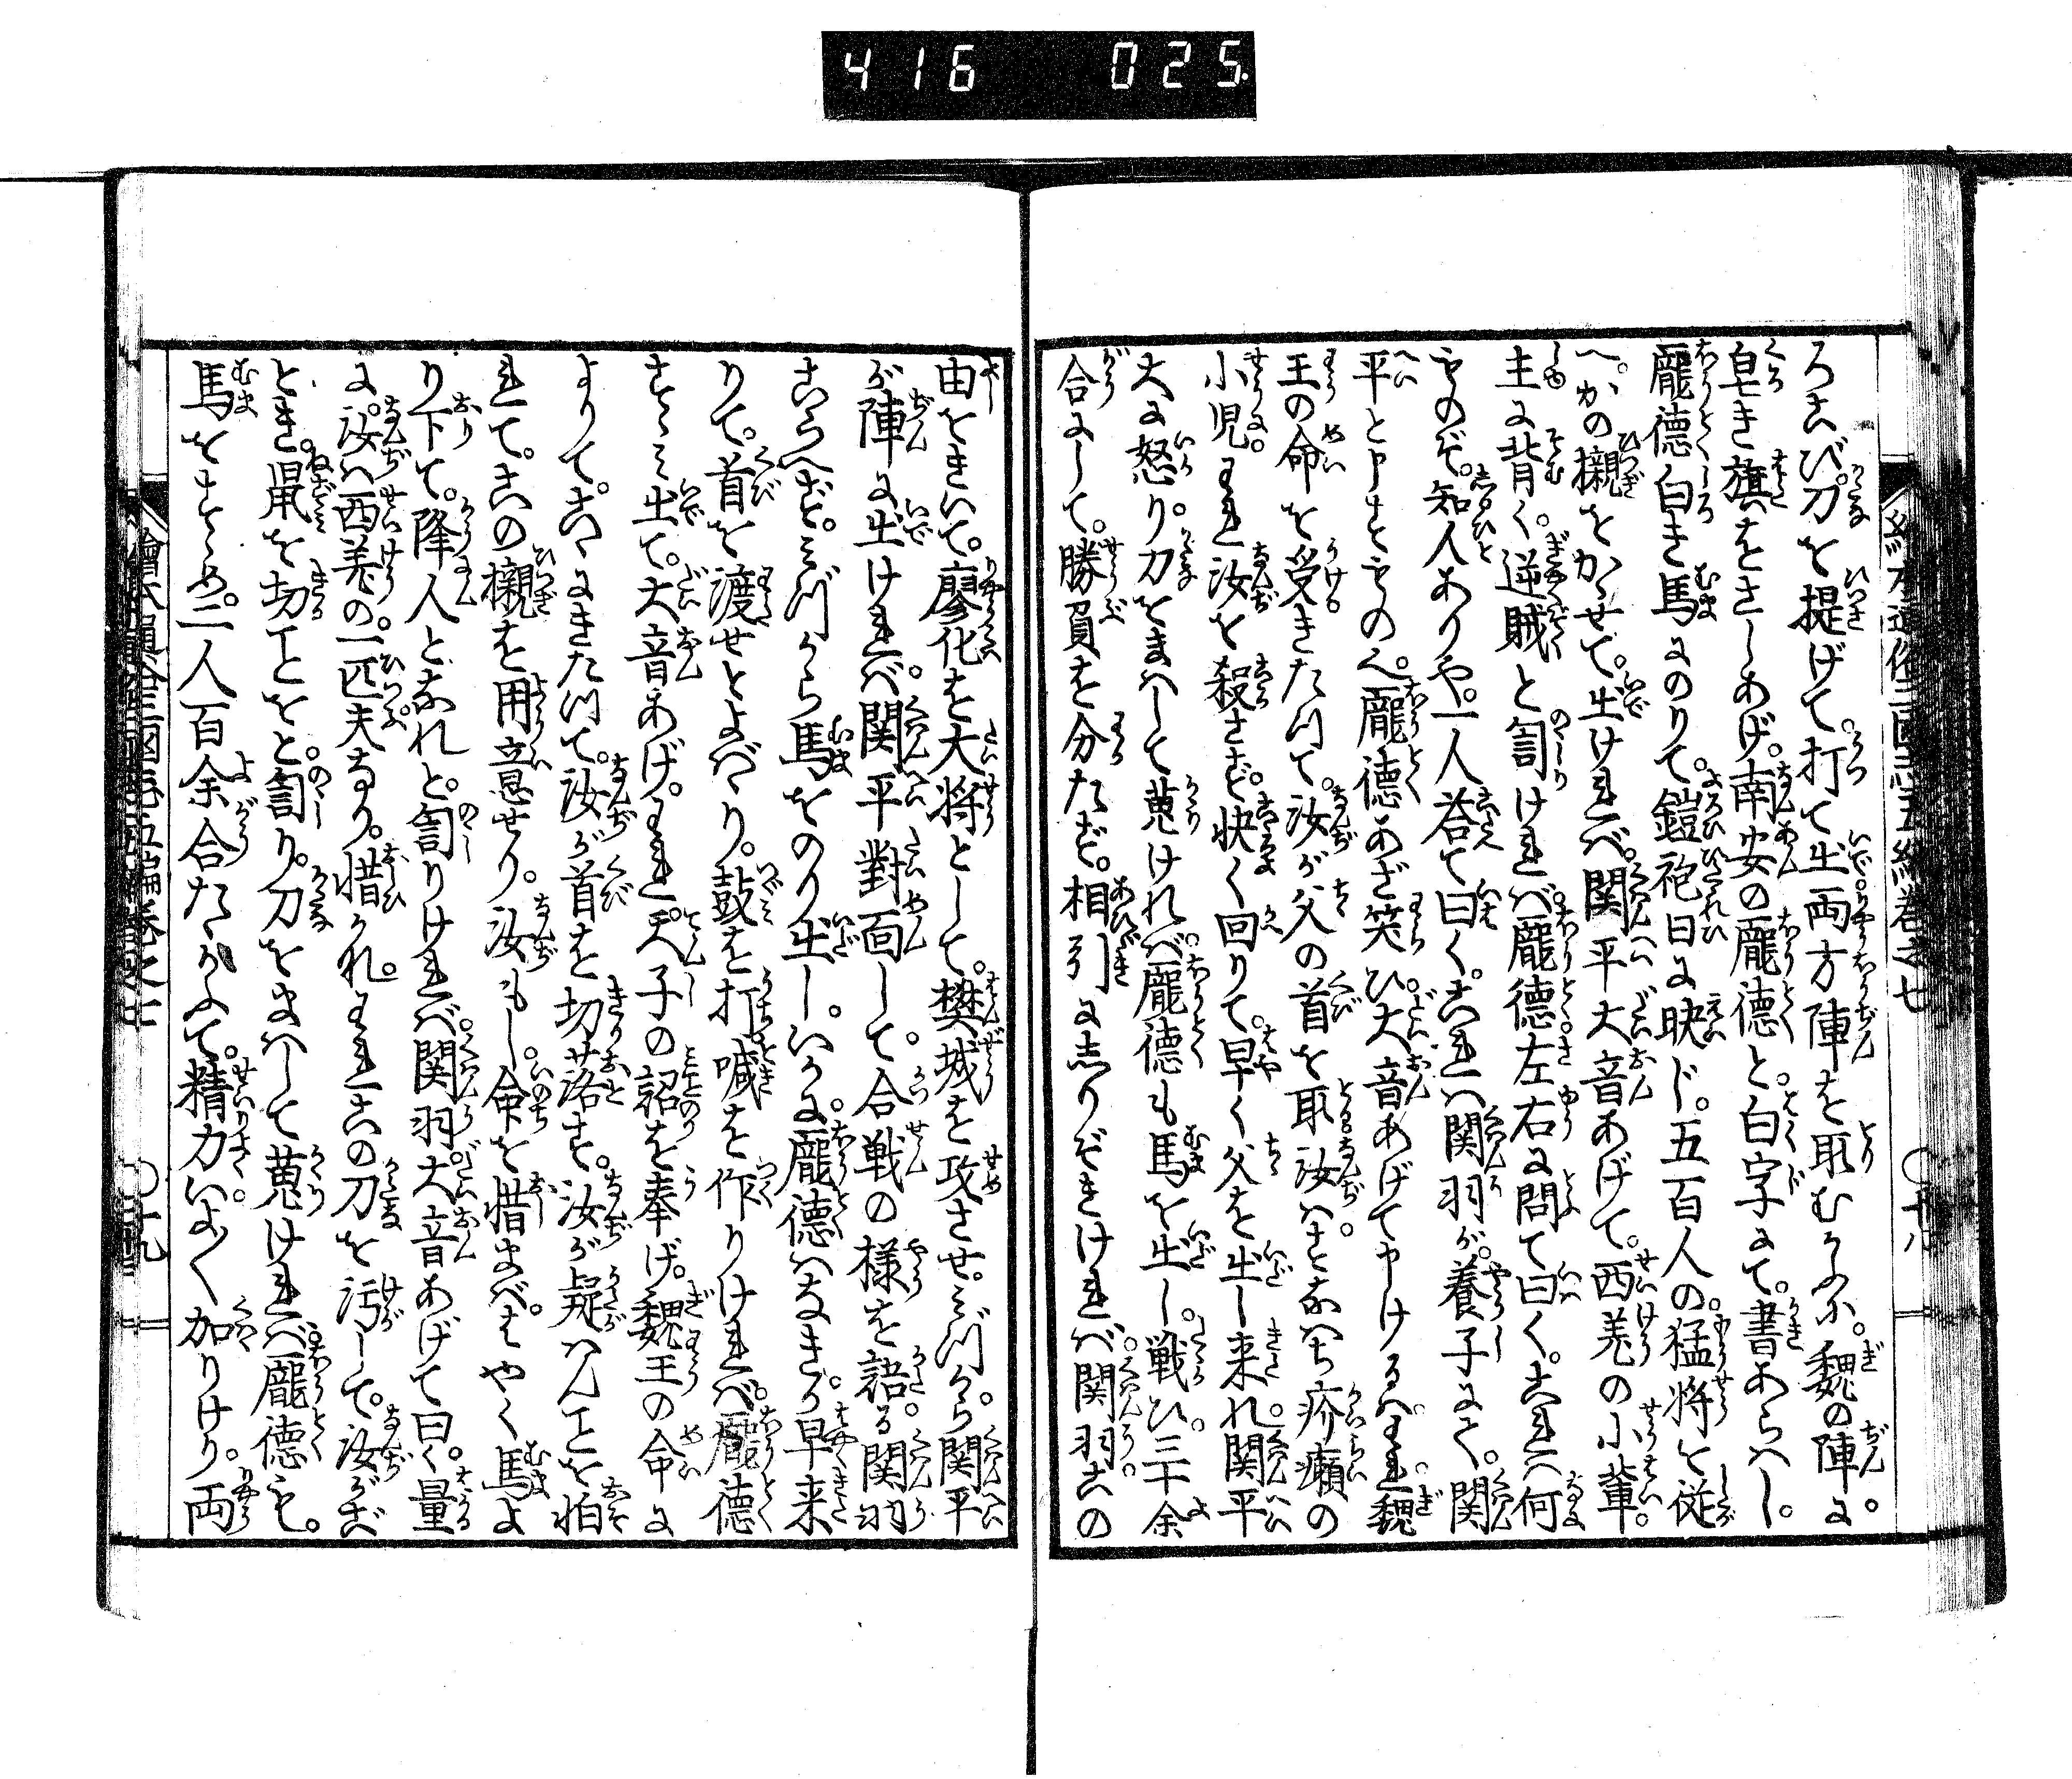 416 025
繪本通俗三國志五編卷之七 ○十八
ろこび。刀を提げて。打て出両方陣を取むかふ。魏の陣に。
皂き旗をさしあげ。南安の龐徳と。白字にて。書あらハし。
龐徳白き馬にのりて。鎧袍日に映じ。五百人の。猛将を従
へ。かの櫬をかゝせて。出けれべ。関平大音あげて。西羗の小輩。
主に背く。逆賊と詈けれバ。龐徳左右に問て曰く。これハ何
ものぞ。知人ありや。一人荅て曰く。これハ関羽が。養子にて。関
平と申すものへ。龐徳あざ笑ひ。大音あげて申けるハ。われ魏
王の命を受きたつて。汝が父の首を取。汝ハすなハち疥癩の
小児。われ汝を殺さず。快く回りて。早く父を出し来れ。関平
大に怒り。刀をまハして蒐けれバ。龐徳も馬を出し。戦ひ三十余
合にして。勝負を分たず。相引に志りぞきけれバ。関羽この
由をきいて。廖化を大将として。樊城を攻させ。ミづから。関平
が陣に出けれバ。関平對面して。合戦の様を語る。関羽
こらへず。ミづから馬をのり出し。いかに龐徳ハなきか。早来
りて。首を渡せとよバゝり。鼓を打。喊を作りけれバ。龐徳
すゝミ出て。大音あげ。われ天子の詔を奉げ。魏王の命に
よりて。こゝにきたつて。汝が首を切落す。汝が疑ハんことを怕
れて。この櫬を用意せり。汝もし命を惜まバ。はやく馬よ
り下て。降人となれと。詈りけれバ。関羽。大音あげて曰く。量
に汝ハ西羗の。一匹夫なり。惜かれ。われこの刀を汚して。汝がご
とき。鼠を切ことをと。詈り。刀をまハして蒐けれバ龐徳も。
馬をすゝめ。二人百余合たゝかふて。精力いよ〱加りけり。両
繪本通俗三國志五編卷之七 ○十九